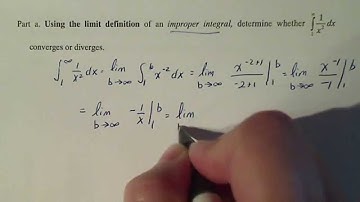 Part a. Using the limit definition of an improper integral, determine whether ∫₁^∞ 1/x² dx
converges or diverges.
∫₁^∞ 1/x² dx = lim b→∞ ∫₁^b x⁻² dx = lim b→∞ x⁻²⁺¹/-2+1 |₁^b = lim b→∞ x⁻¹/-1 |₁^b
= lim b→∞ -1/x |₁^b = lim b